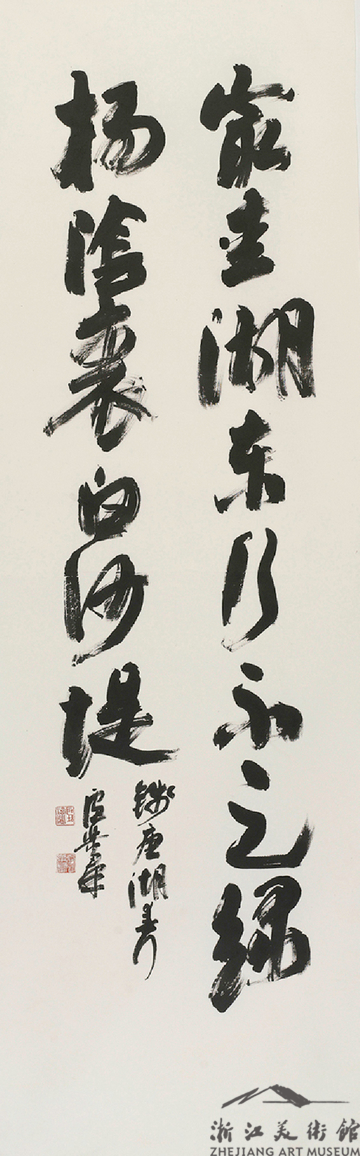 最爱湖东行不足绿
杨陰裏白沙堤
钱唐湖春行
浙江美術館
ZHEJIANG ART MUSEUM